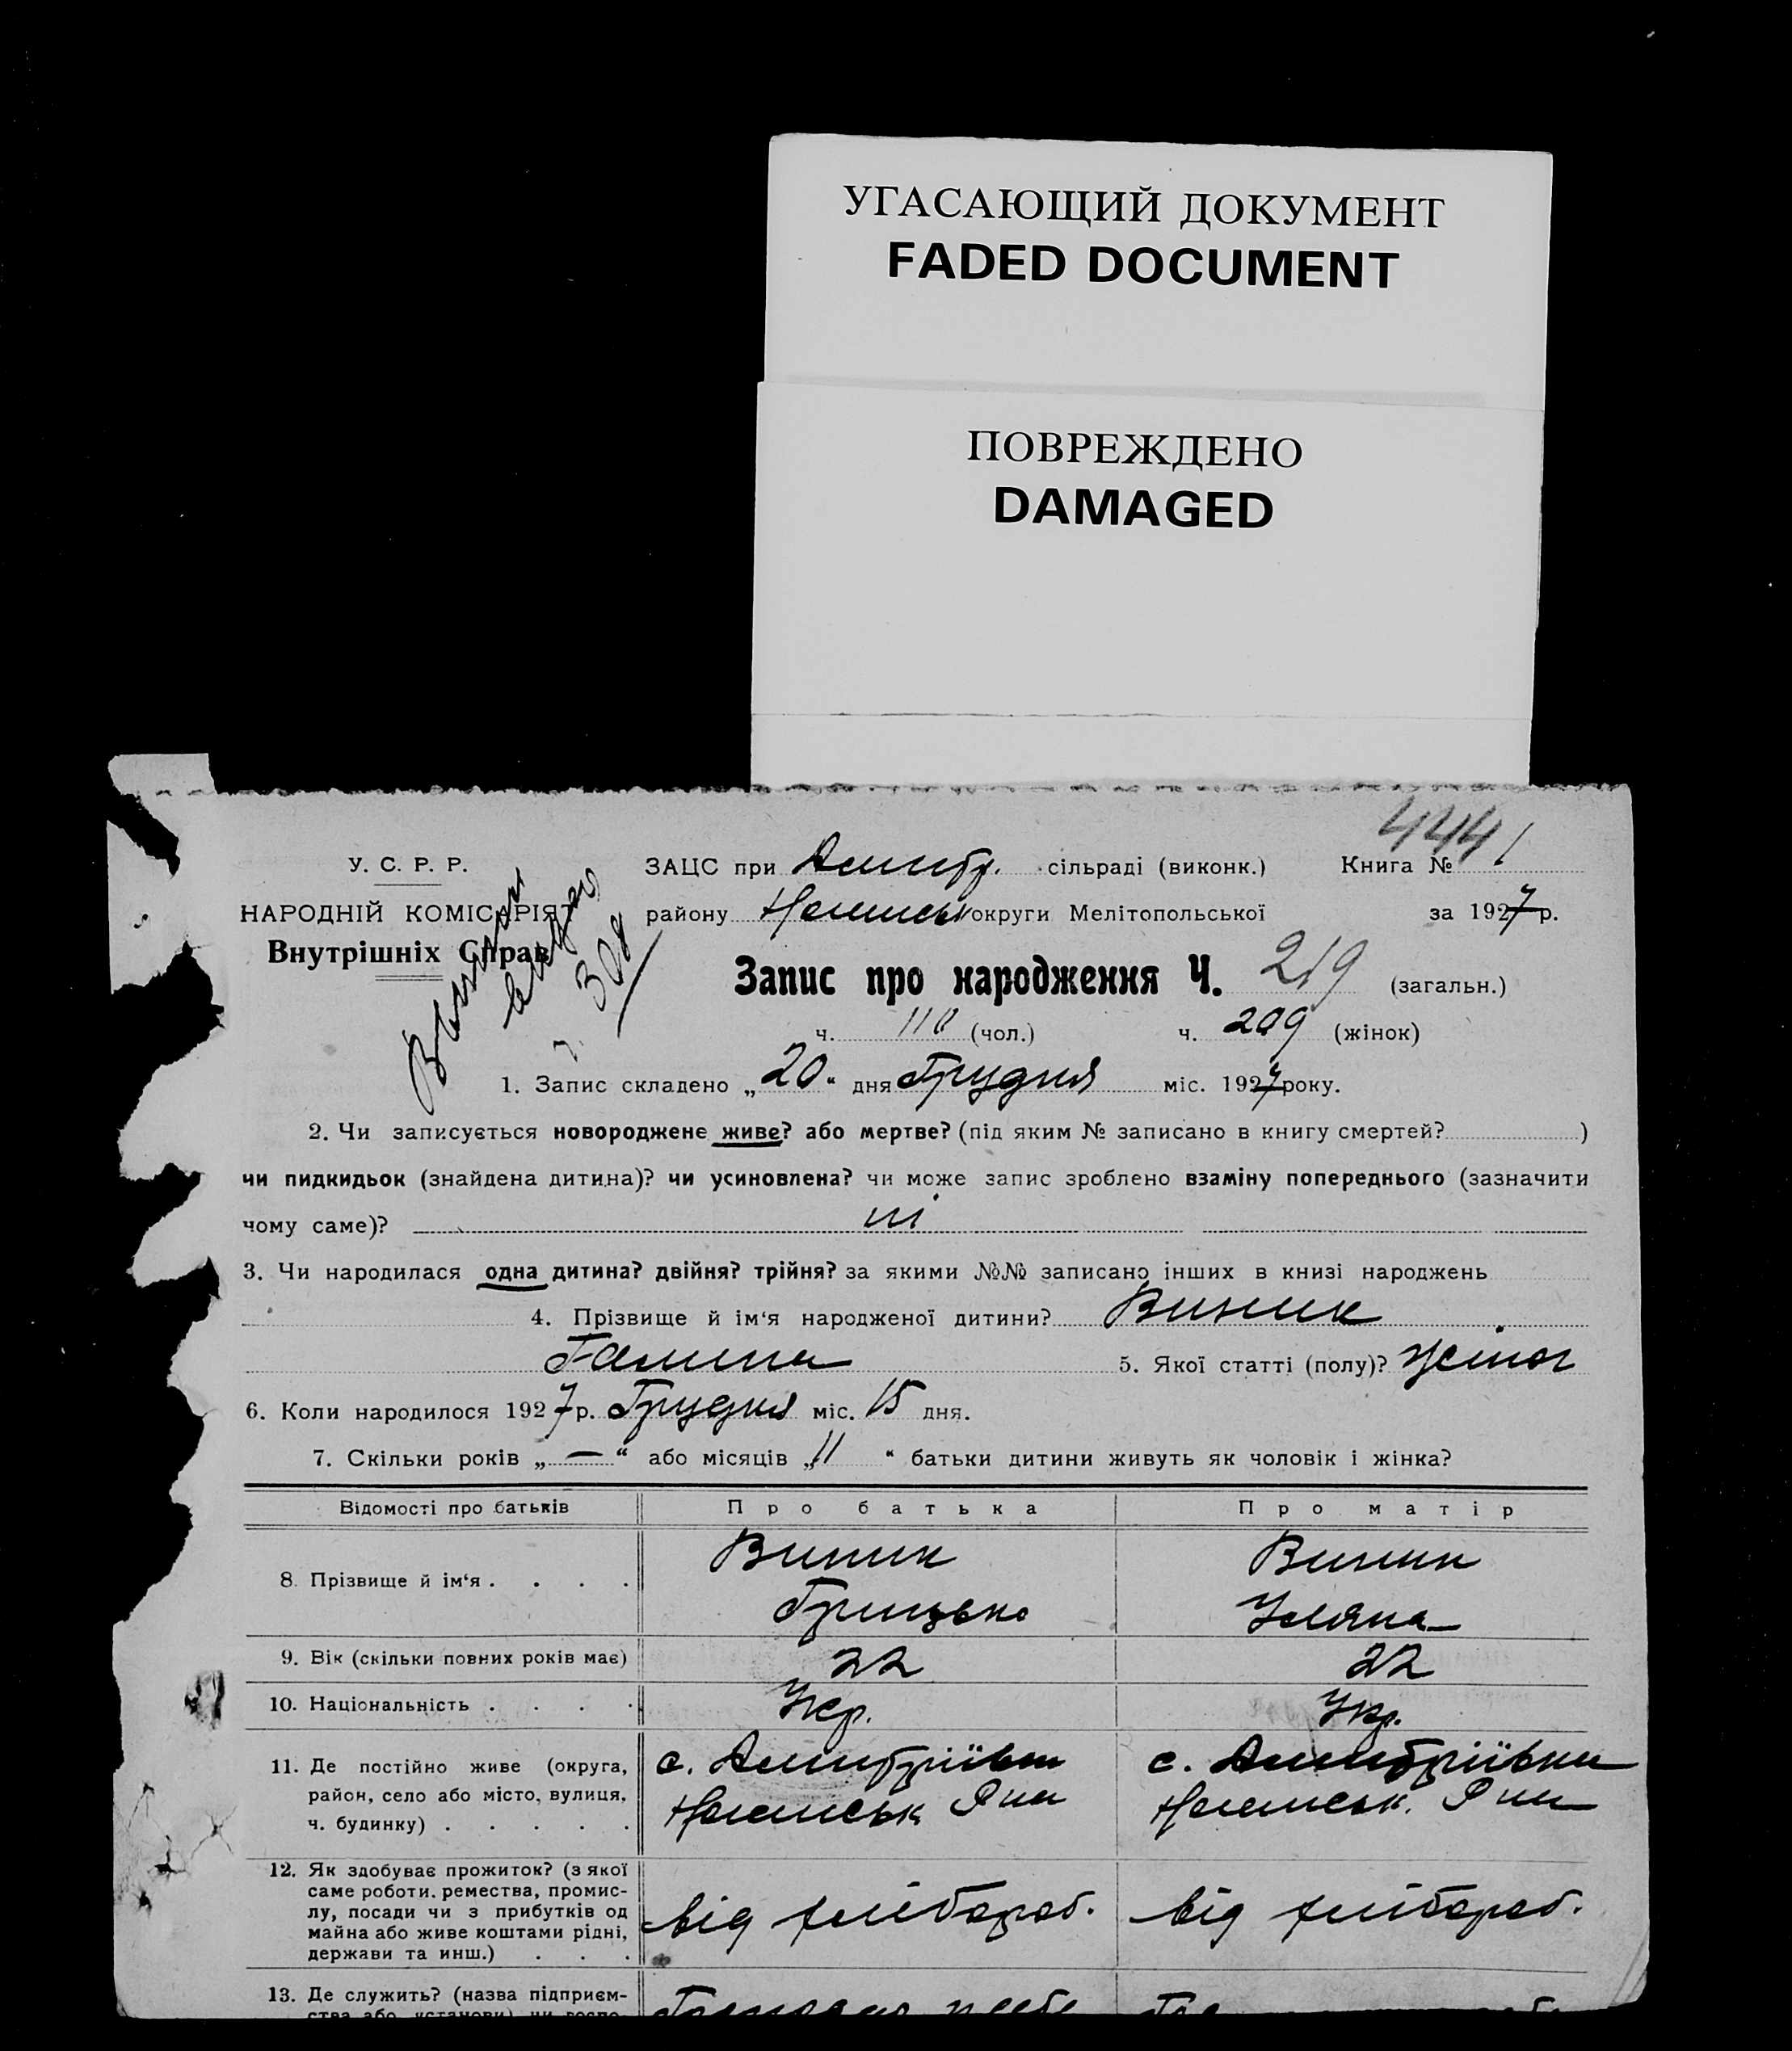 УГАСАЮЩИЙ ДОКУМЕНТ
FADED DOCUMENT
ПОВРЕЖДЕНО
DAMAGED
4441
У. С. Р. Р.
ЗАЦС при Дмитр. сільраді (виконк.)
Книга № 1
НАРОДНІЙ КОМІСАРІЯТ
району округи Мелітопольської
за 1927 р.
Внутрішніх Справ
видано
308
Запис про народження Ч. 219 (загальн.)
ч. 110 (чол.) ч. 209 (жінок)
1. Запис складено „20“ дня Грудня міс. 1927 року.
2. Чи записується новороджене живе? або мертве? (під яким № записано в книгу смертей? )
чи пидкидьок (знайдена дитина)? чи усиновлена? чи може запис зроблено взаміну попереднього (зазначити
чому саме)? ні
3. Чи народилася одна дитина? двійня? трійня? за якими №№ записано інших в книзі народжень
4. Прізвище й ім‘я народженої дитини? Виник
Галина 5. Якої статті (полу)? Жіноч
6. Коли народилося 1927 р. Грудня міс. 15 дня.
7. Скільки років „—“ або місяців „11“ батьки дитини живуть як чоловік і жінка?
Відомості про батьків
Про батька
Про матір
8. Прізвище й ім‘я . . . .
Виник
Грицько
Виник
Уляна
9. Вік (скільки повних років має)
22
22
10. Національність . . . .
Укр.
Укр.
11. Де постійно живе (округа,
район, село або місто, вулиця,
ч. будинку) . . . . .
с. Дмитріївки
Р на
с. Дмитріївки
Р на
12. Як здобуває прожиток? (з якої
саме роботи, ремества, промис-
лу, посади чи з прибутків од
майна або живе коштами рідні,
держави та инш.) . . .
від хлібороб.
від хлібороб.
13. Де служить? (назва підприєм-
ства або установи) чи госпо-